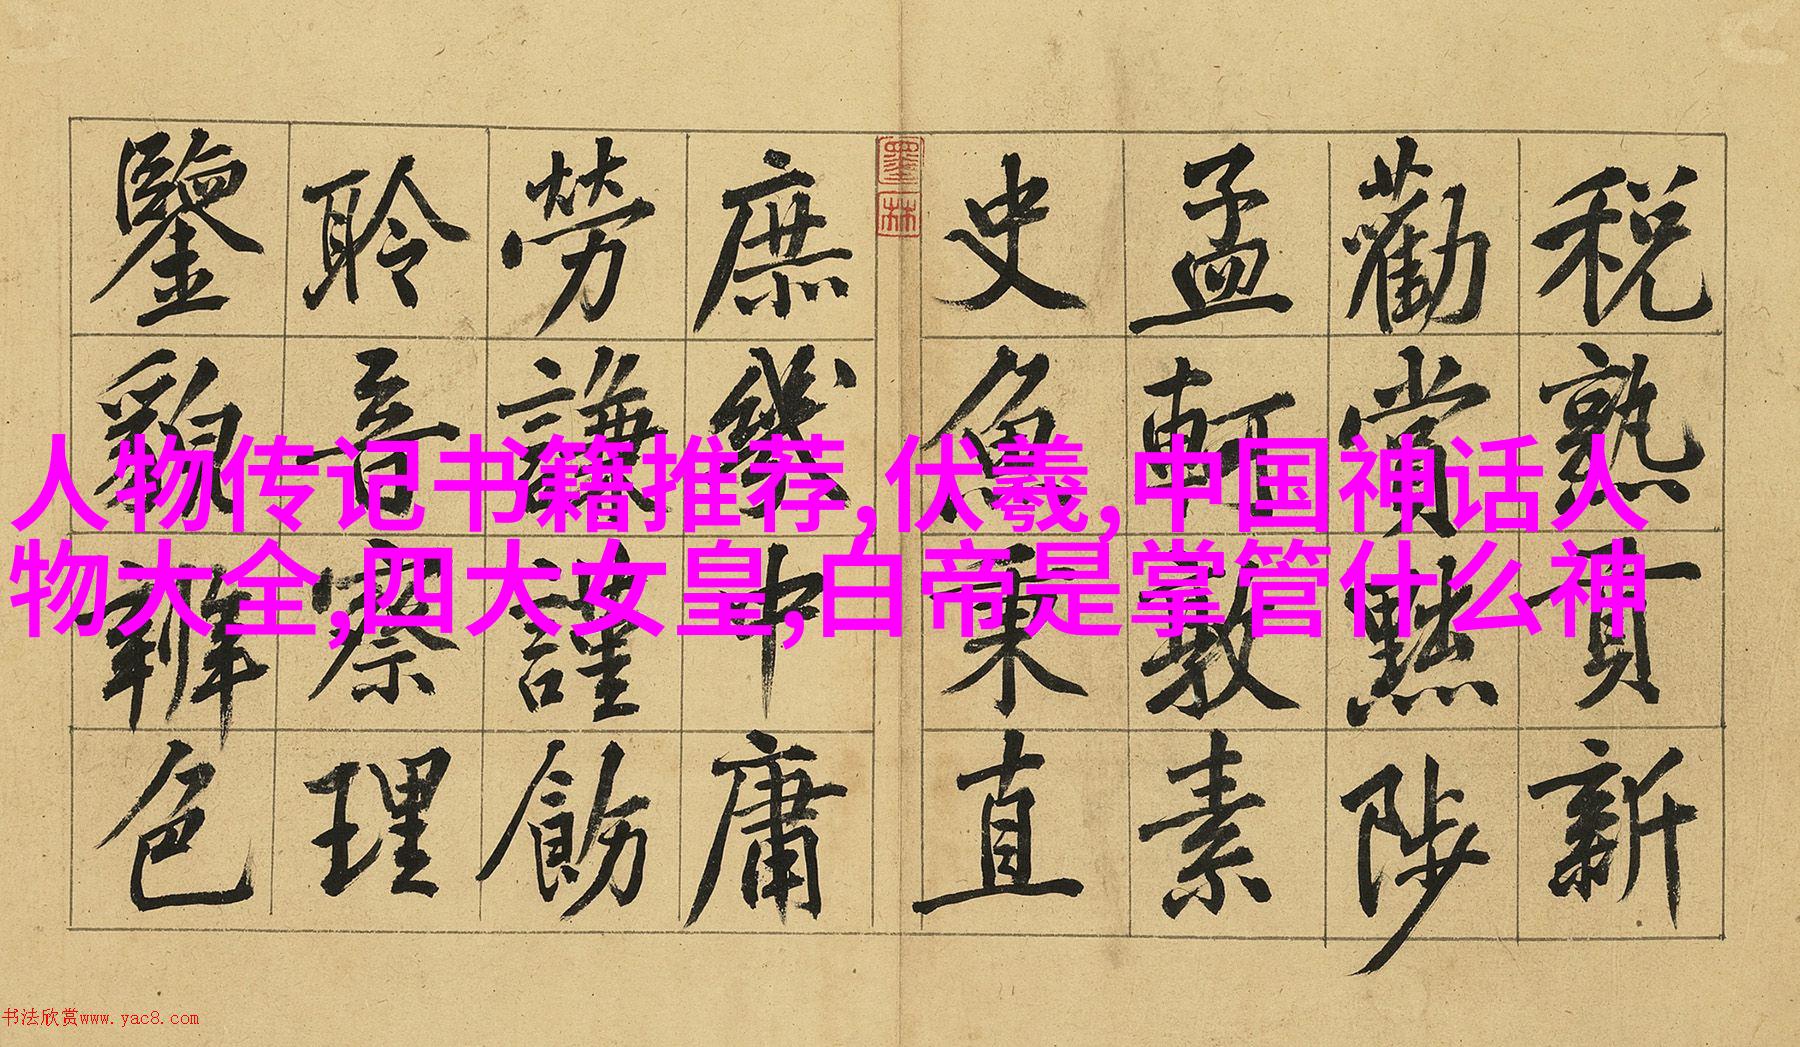 人物传记书籍推荐,伏羲,中国神话人
物大全,四大女皇,白帝是掌管什么神
税熟貢新
勸賞黜陟
孟軻敦素
史魚秉直
墨林
庶幾中庸
勞謙謹飭
聆音察理
鑒貌辨色
书法欣赏www.yac8.com